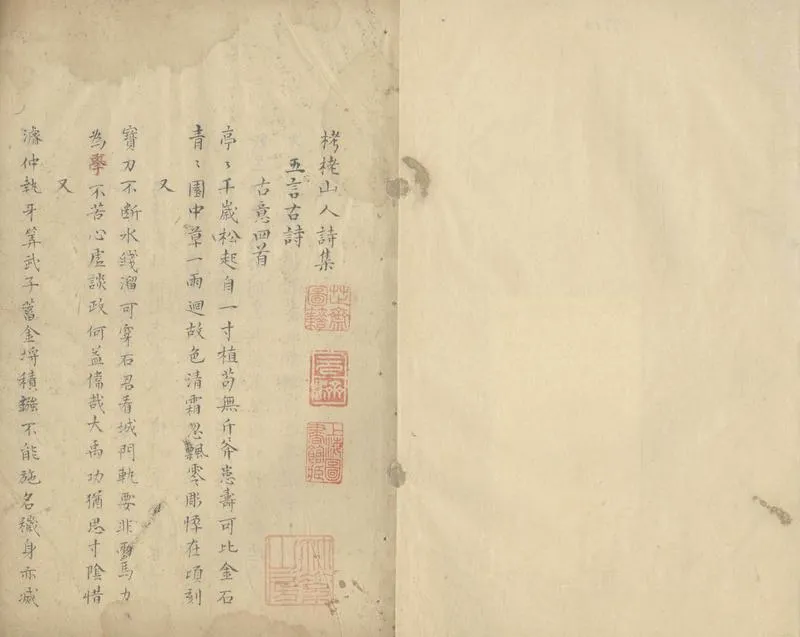 栲栳山人詩集
五言古詩
古意四首
亭〻千歲松起自一寸植苟無斤斧患壽可比金石
青〻園中草一雨迴故色清霜忽飄零彫悴在頃刻
又
寶刀不斷水綫溜可穿石君看城門軌要非兩馬力
為學不苦心虛談政何益偉哉大禹功猶思寸陰惜
又
濬仲執牙筭武子蓄金埒積鏹不能施名穢身亦滅
芷齋
圖籍
上海圖
書館藏